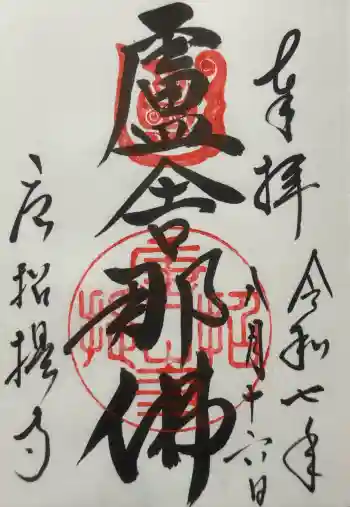 奉拝
令和七年
八月十六日
盧舎那佛
唐招提寺